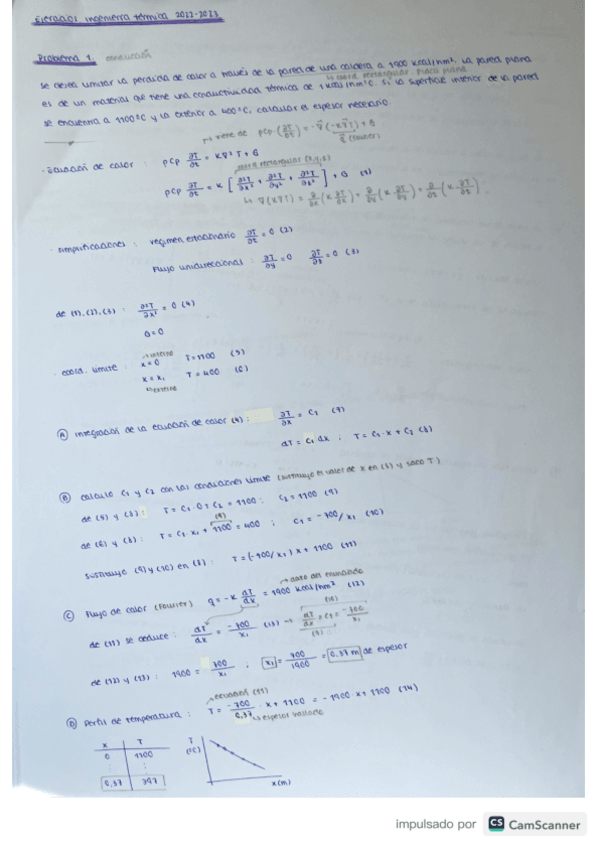 Ejercicios ingeniería térmica 2022-2023
Problema 1. conducción
se desea limitar la pérdida de calor a través de la pared de una caldera a 1900 kcal/hm². La pared plana
↳ coord. rectangular placa plana
es de un material que tiene una conductividad térmica de 1 kcal/hm°C. Si la superficie interior de la pared
se encuentra a 1100°C y la exterior a 400°C, calcular el espesor necesario.
↳ viene de ρCp·(∂T/∂t) = -∇(-K∇T) + G
q (Fourier)
· Ecuación de calor : ρCp ∂T/∂t = K∇²T + G
coord. rectangular (x,y,z)
ρCp ∂T/∂t = K [∂²T/∂x² + ∂²T/∂y² + ∂²T/∂z²] + G (1)
↳ ∇(K∇T) = ∂/∂x (K ∂T/∂x) = ∂/∂y (K ∂T/∂y) = ∂/∂z (K ∂T/∂z)
· Simplificaciones : régimen estacionario ∂T/∂t = 0 (2)
Flujo unidireccional : ∂T/∂y = 0 ∂T/∂z = 0 (3)
de (1), (2), (3) : ∂²T/∂x² = 0 (4)
G=0
→ interno
· coord. límite : x=0 T=1100 (5)
x=x₁ T=400 (6)
↳ externo
Ⓐ integración de la ecuación de calor (4) : ∂T/∂x = C₁ (7)
dT = C₁ dx ; T = C₁·x + C₂ (8)
Ⓑ calculo C₁ y C₂ con las condiciones límite (sustituyo el valor de x en (8) y saco T)
de (5) y (8) : T = C₁·0 + C₂ = 1100 ; C₂ = 1100 (9)
(9)
de (6) y (8) : T = C₁·x₁ + 1100 = 400 ; C₁ = -700/x₁ (10)
sustituyo (9) y (10) en (8) : T = (-700/x₁)x + 1100 (11)
→ dato del enunciado
Ⓒ Flujo de calor (Fourier) q = -K dT/dx = 1900 kcal/hm² (12)
(10)
de (11) se deduce : dT/dx = -700/x₁ (13) → dT/dx = C₁ = -700/x₁
(7)
de (12) y (13) : 1900 = 700/x₁ ; x₁ = 700/1900 = 0,37 m de espesor
→ ecuación (11)
Ⓓ Perfil de temperatura : T = -700/0,37 · x + 1100 = -1900·x + 1100 (14)
↳ espesor hallado
x T
0 1100
⋮ ⋮
0,37 397
T
(°C)
x(m)
impulsado por CS CamScanner